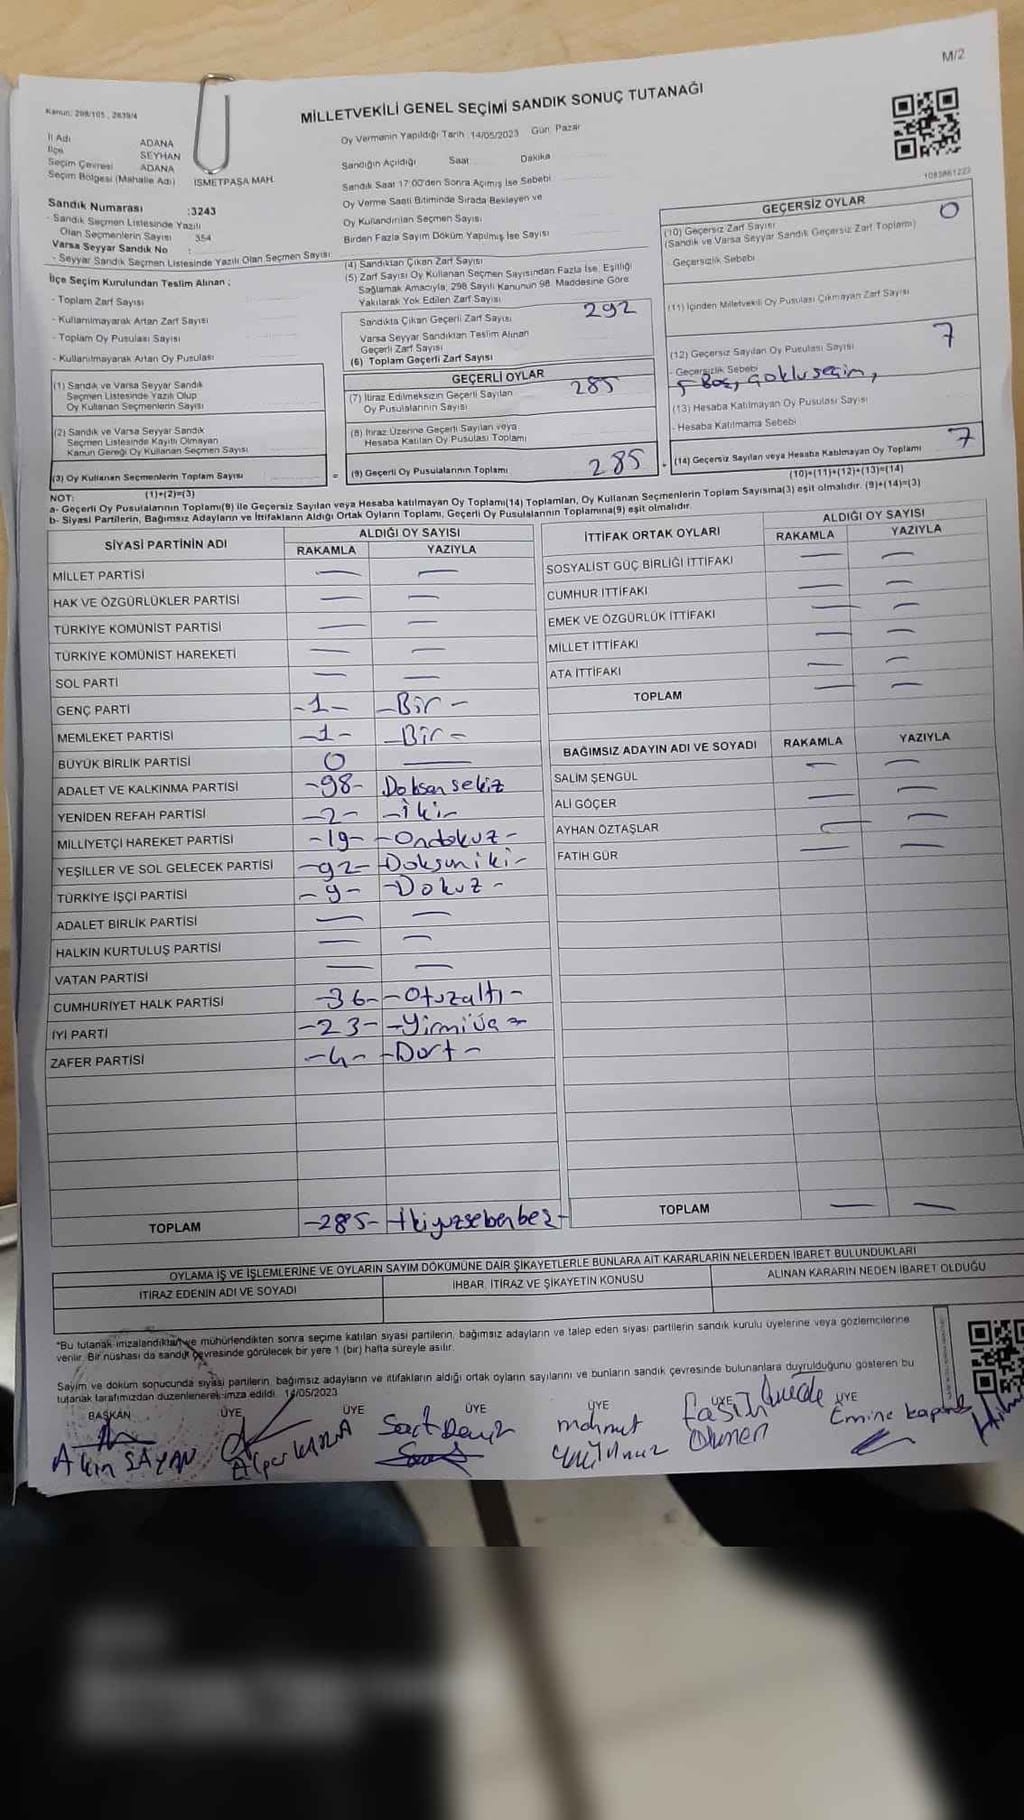 M/2
Kanun: 298/105 , 2839/4
MİLLETVEKİLİ GENEL SEÇİMİ SANDIK SONUÇ TUTANAĞI
İl Adı ADANA
İlçe SEYHAN
Seçim Çevresi ADANA
Seçim Bölgesi (Mahalle Adı) İSMETPAŞA MAH.
Oy Vermenin Yapıldığı Tarih :14/05/2023 Gün: Pazar
Sandığın Açıldığı Saat Dakika
Sandık Saat 17:00'den Sonra Açımış İse Sebebi
Oy Verme Saati Bitiminde Sırada Bekleyen ve
Oy Kullandırılan Seçmen Sayısı
Birden Fazla Sayım Döküm Yapılmış İse Sayısı
1083861223
Sandık Numarası :3243
- Sandık Seçmen Listesinde Yazılı
Olan Seçmenlerin Sayısı : 354
Varsa Seyyar Sandık No :
- Seyyar Sandık Seçmen Listesinde Yazılı Olan Seçmen Sayısı:
İlçe Seçim Kurulundan Teslim Alınan ;
- Toplam Zarf Sayısı
- Kullanılmayarak Artan Zarf Sayısı
- Toplam Oy Pusulası Sayısı
- Kullanılmayarak Artan Oy Pusulası
(1) Sandık ve Varsa Seyyar Sandık
Seçmen Listesinde Yazılı Olup
Oy Kullanan Seçmenlerin Sayısı
(2) Sandık ve Varsa Seyyar Sandık
Seçmen Listesinde Kayıtlı Olmayan
Kanun Gereği Oy Kullanan Seçmen Sayısı
(3) Oy Kullanan Seçmenlerin Toplam Sayısı
(1)+(2)=(3)
(4) Sandıktan Çıkan Zarf Sayısı
(5) Zarf Sayısı Oy Kullanan Seçmen Sayısından Fazla İse, Eşitliği
Sağlamak Amacıyla; 298 Sayılı Kanunun 98. Maddesine Göre
Yakılarak Yok Edilen Zarf Sayısı
Sandıkta Çıkan Geçerli Zarf Sayısı 292
Varsa Seyyar Sandıktan Teslim Alınan
Geçerli Zarf Sayısı
(6) Toplam Geçerli Zarf Sayısı
GEÇERLİ OYLAR
(7) İtiraz Edilmeksizin Geçerli Sayılan
Oy Pusulalarının Sayısı 285
(8) İtiraz Üzerine Geçerli Sayılan veya
Hesaba Katılan Oy Pusulası Toplamı
= (9) Geçerli Oy Pusulalarının Toplamı 285 +
GEÇERSİZ OYLAR
(10) Geçersiz Zarf Sayısı 0
(Sandık ve Varsa Seyyar Sandık Geçersiz Zarf Toplamı)
- Geçersizlik Sebebi
(11) İçinden Milletvekili Oy Pusulası Çıkmayan Zarf Sayısı
(12) Geçersiz Sayılan Oy Pusulası Sayısı 7
- Geçersizlik Sebebi
Boş, çoklu seçim,
(13) Hesaba Katılmayan Oy Pusulası Sayısı
- Hesaba Katılmama Sebebi
(14) Geçersiz Sayılan veya Hesaba Katılmayan Oy Toplamı 7
(10)+(11)+(12)+(13)=(14)
NOT:
a- Geçerli Oy Pusulalarının Toplamı(9) ile Geçersiz Sayılan veya Hesaba katılmayan Oy Toplamı(14) Toplamları, Oy Kullanan Seçmenlerin Toplam Sayısına(3) eşit olmalıdır. (9)+(14)=(3)
b- Siyasi Partilerin, Bağımsız Adayların ve İttifakların Aldığı Ortak Oyların Toplamı, Geçerli Oy Pusulalarının Toplamına(9) eşit olmalıdır.
SİYASİ PARTİNİN ADI ALDIĞI OY SAYISI
RAKAMLA YAZIYLA
MİLLET PARTİSİ — —
HAK VE ÖZGÜRLÜKLER PARTİSİ — —
TÜRKİYE KOMÜNİST PARTİSİ — —
TÜRKİYE KOMÜNİST HAREKETİ — —
SOL PARTİ — —
GENÇ PARTİ -1- -Bir-
MEMLEKET PARTİSİ -1- -Bir-
BÜYÜK BİRLİK PARTİSİ 0 —
ADALET VE KALKINMA PARTİSİ -98- Doksan sekiz
YENİDEN REFAH PARTİSİ -2- -İki-
MİLLİYETÇİ HAREKET PARTİSİ -19- -Ondokuz-
YEŞİLLER VE SOL GELECEK PARTİSİ -92- -Doksan iki-
TÜRKİYE İŞÇİ PARTİSİ -9- -Dokuz-
ADALET BİRLİK PARTİSİ — —
HALKIN KURTULUŞ PARTİSİ — —
VATAN PARTİSİ — —
CUMHURİYET HALK PARTİSİ -36- -Otuzaltı-
İYİ PARTİ -23- -Yirmi üç-
ZAFER PARTİSİ -4- -Dört-
TOPLAM -285- -İkiyüzseksenbeş-
İTTİFAK ORTAK OYLARI ALDIĞI OY SAYISI
RAKAMLA YAZIYLA
SOSYALİST GÜÇ BİRLİĞİ İTTİFAKI — —
CUMHUR İTTİFAKI — —
EMEK VE ÖZGÜRLÜK İTTİFAKI — —
MİLLET İTTİFAKI — —
ATA İTTİFAKI — —
TOPLAM — —
BAĞIMSIZ ADAYIN ADI VE SOYADI RAKAMLA YAZIYLA
SALİM ŞENGÜL — —
ALİ GÖÇER — —
AYHAN ÖZTAŞLAR — —
FATİH GÜR — —
TOPLAM — —
OYLAMA İŞ VE İŞLEMLERİNE VE OYLARIN SAYIM DÖKÜMÜNE DAİR ŞİKAYETLERLE BUNLARA AİT KARARLARIN NELERDEN İBARET BULUNDUKLARI
İTİRAZ EDENİN ADI VE SOYADI İHBAR, İTİRAZ VE ŞİKAYETİN KONUSU ALINAN KARARIN NEDEN İBARET OLDUĞU
*Bu tutanak imzalandıktan ve mühürlendikten sonra seçime katılan siyasi partilerin, bağımsız adayların ve talep eden siyasi partilerin sandık kurulu üyelerine veya gözlemcilerine
verilir. Bir nüshası da sandık çevresinde görülecek bir yere 1 (bir) hafta süreyle asılır.
Sayım ve döküm sonucunda siyasi partilerin, bağımsız adayların ve ittifakların aldığı ortak oyların sayılarını ve bunların sandık çevresinde bulunanlara duyrulduğunu gösteren bu
tutanak tarafımızdan düzenlenerek imza edildi. 14/05/2023
BAŞKAN ÜYE ÜYE ÜYE ÜYE ÜYE
Akın SAYAN Alper KARA mahmut